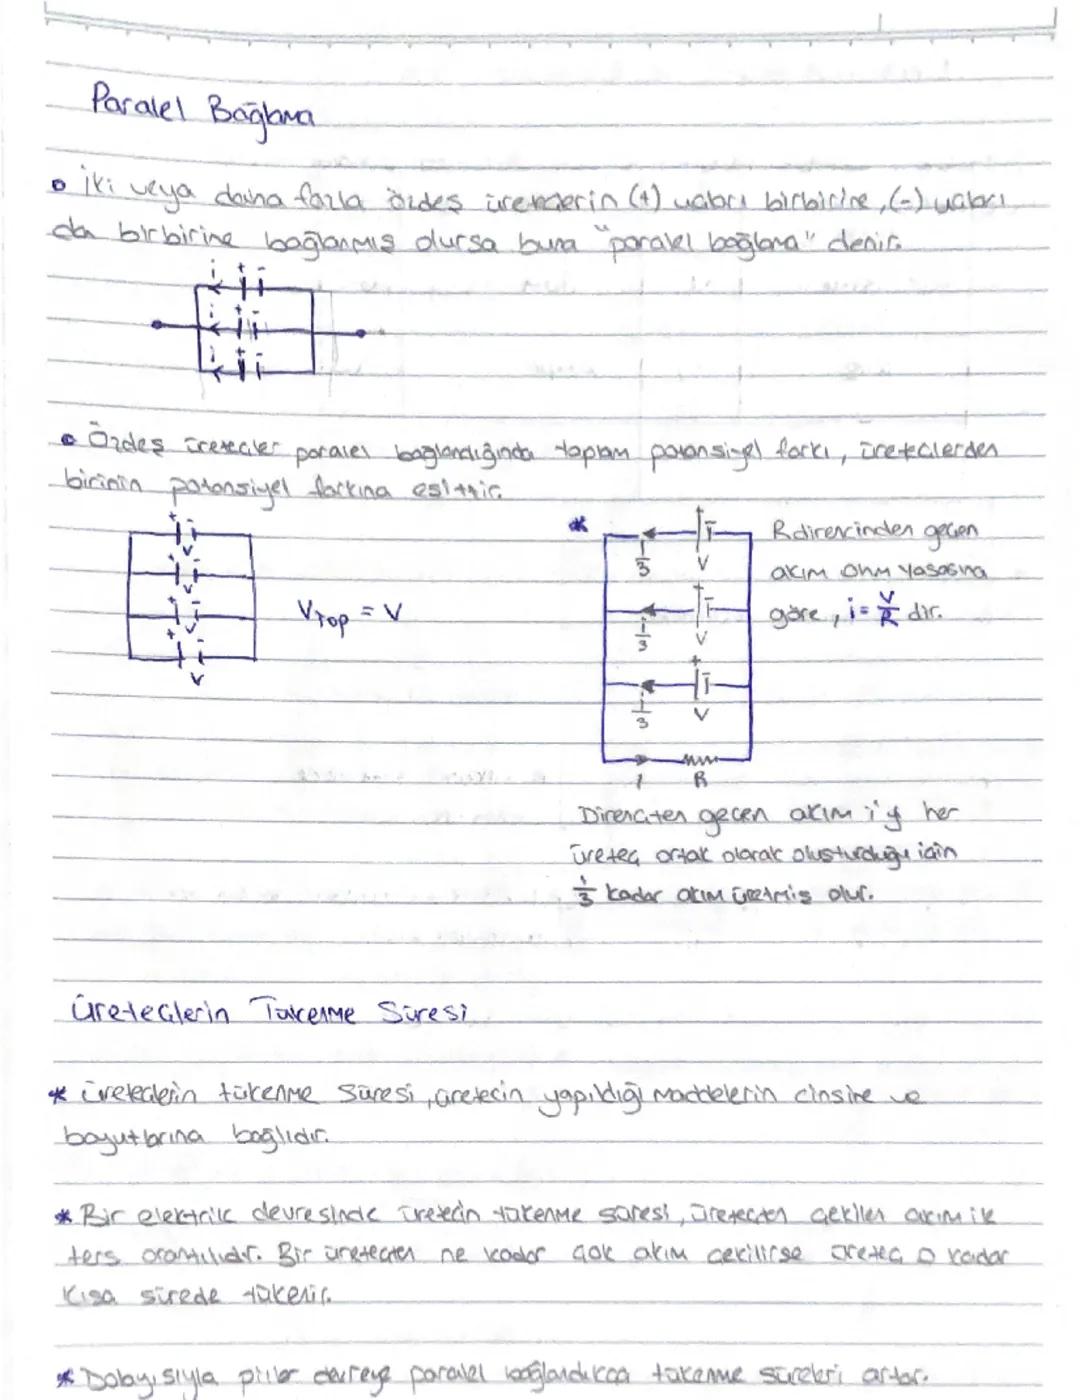 Paralel Bağlama
• İki veya daha fazla özdeş üreteçlerin (+) uçları birbirine, (-) uçları
da birbirine bağlanmış olursa buna "paralel bağlama" denir.
i + -
i + -
i + -
• Özdeş üreteçler paralel bağlandığında toplam potansiyel farkı, üreteçlerden
birinin potansiyel farkına eşittir.
+ - V
+ - V
+ - V
+ - V
VTop = V
*
i/3 + - V
i/3 + - V
i/3 + - V
i R
R direncinden geçen
akım ohm yasasına
göre, i = V/R dir.
Dirençten geçen akım i'yi her
üreteç ortak olarak oluşturduğu için
i/3 kadar akım üretmiş olur.
Üreteçlerin Tükenme Süresi
* Üreteçlerin tükenme süresi, üretecin yapıldığı maddelerin cinsine ve
boyutlarına bağlıdır.
* Bir elektrik devresinde üretecin tükenme süresi, üreteçten çekilen akım ile
ters orantılıdır. Bir üreteçten ne kadar çok akım çekilirse üreteç o kadar
kısa sürede tükenir.
* Dolayısıyla piller devreye paralel bağlandıkça tükenme süreleri artar.